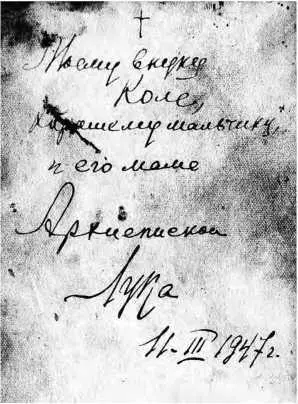 Моему внуку
Коле,
хорошему мальчику,
и его маме
Архиепископ
Лука
11-III 1947 г.